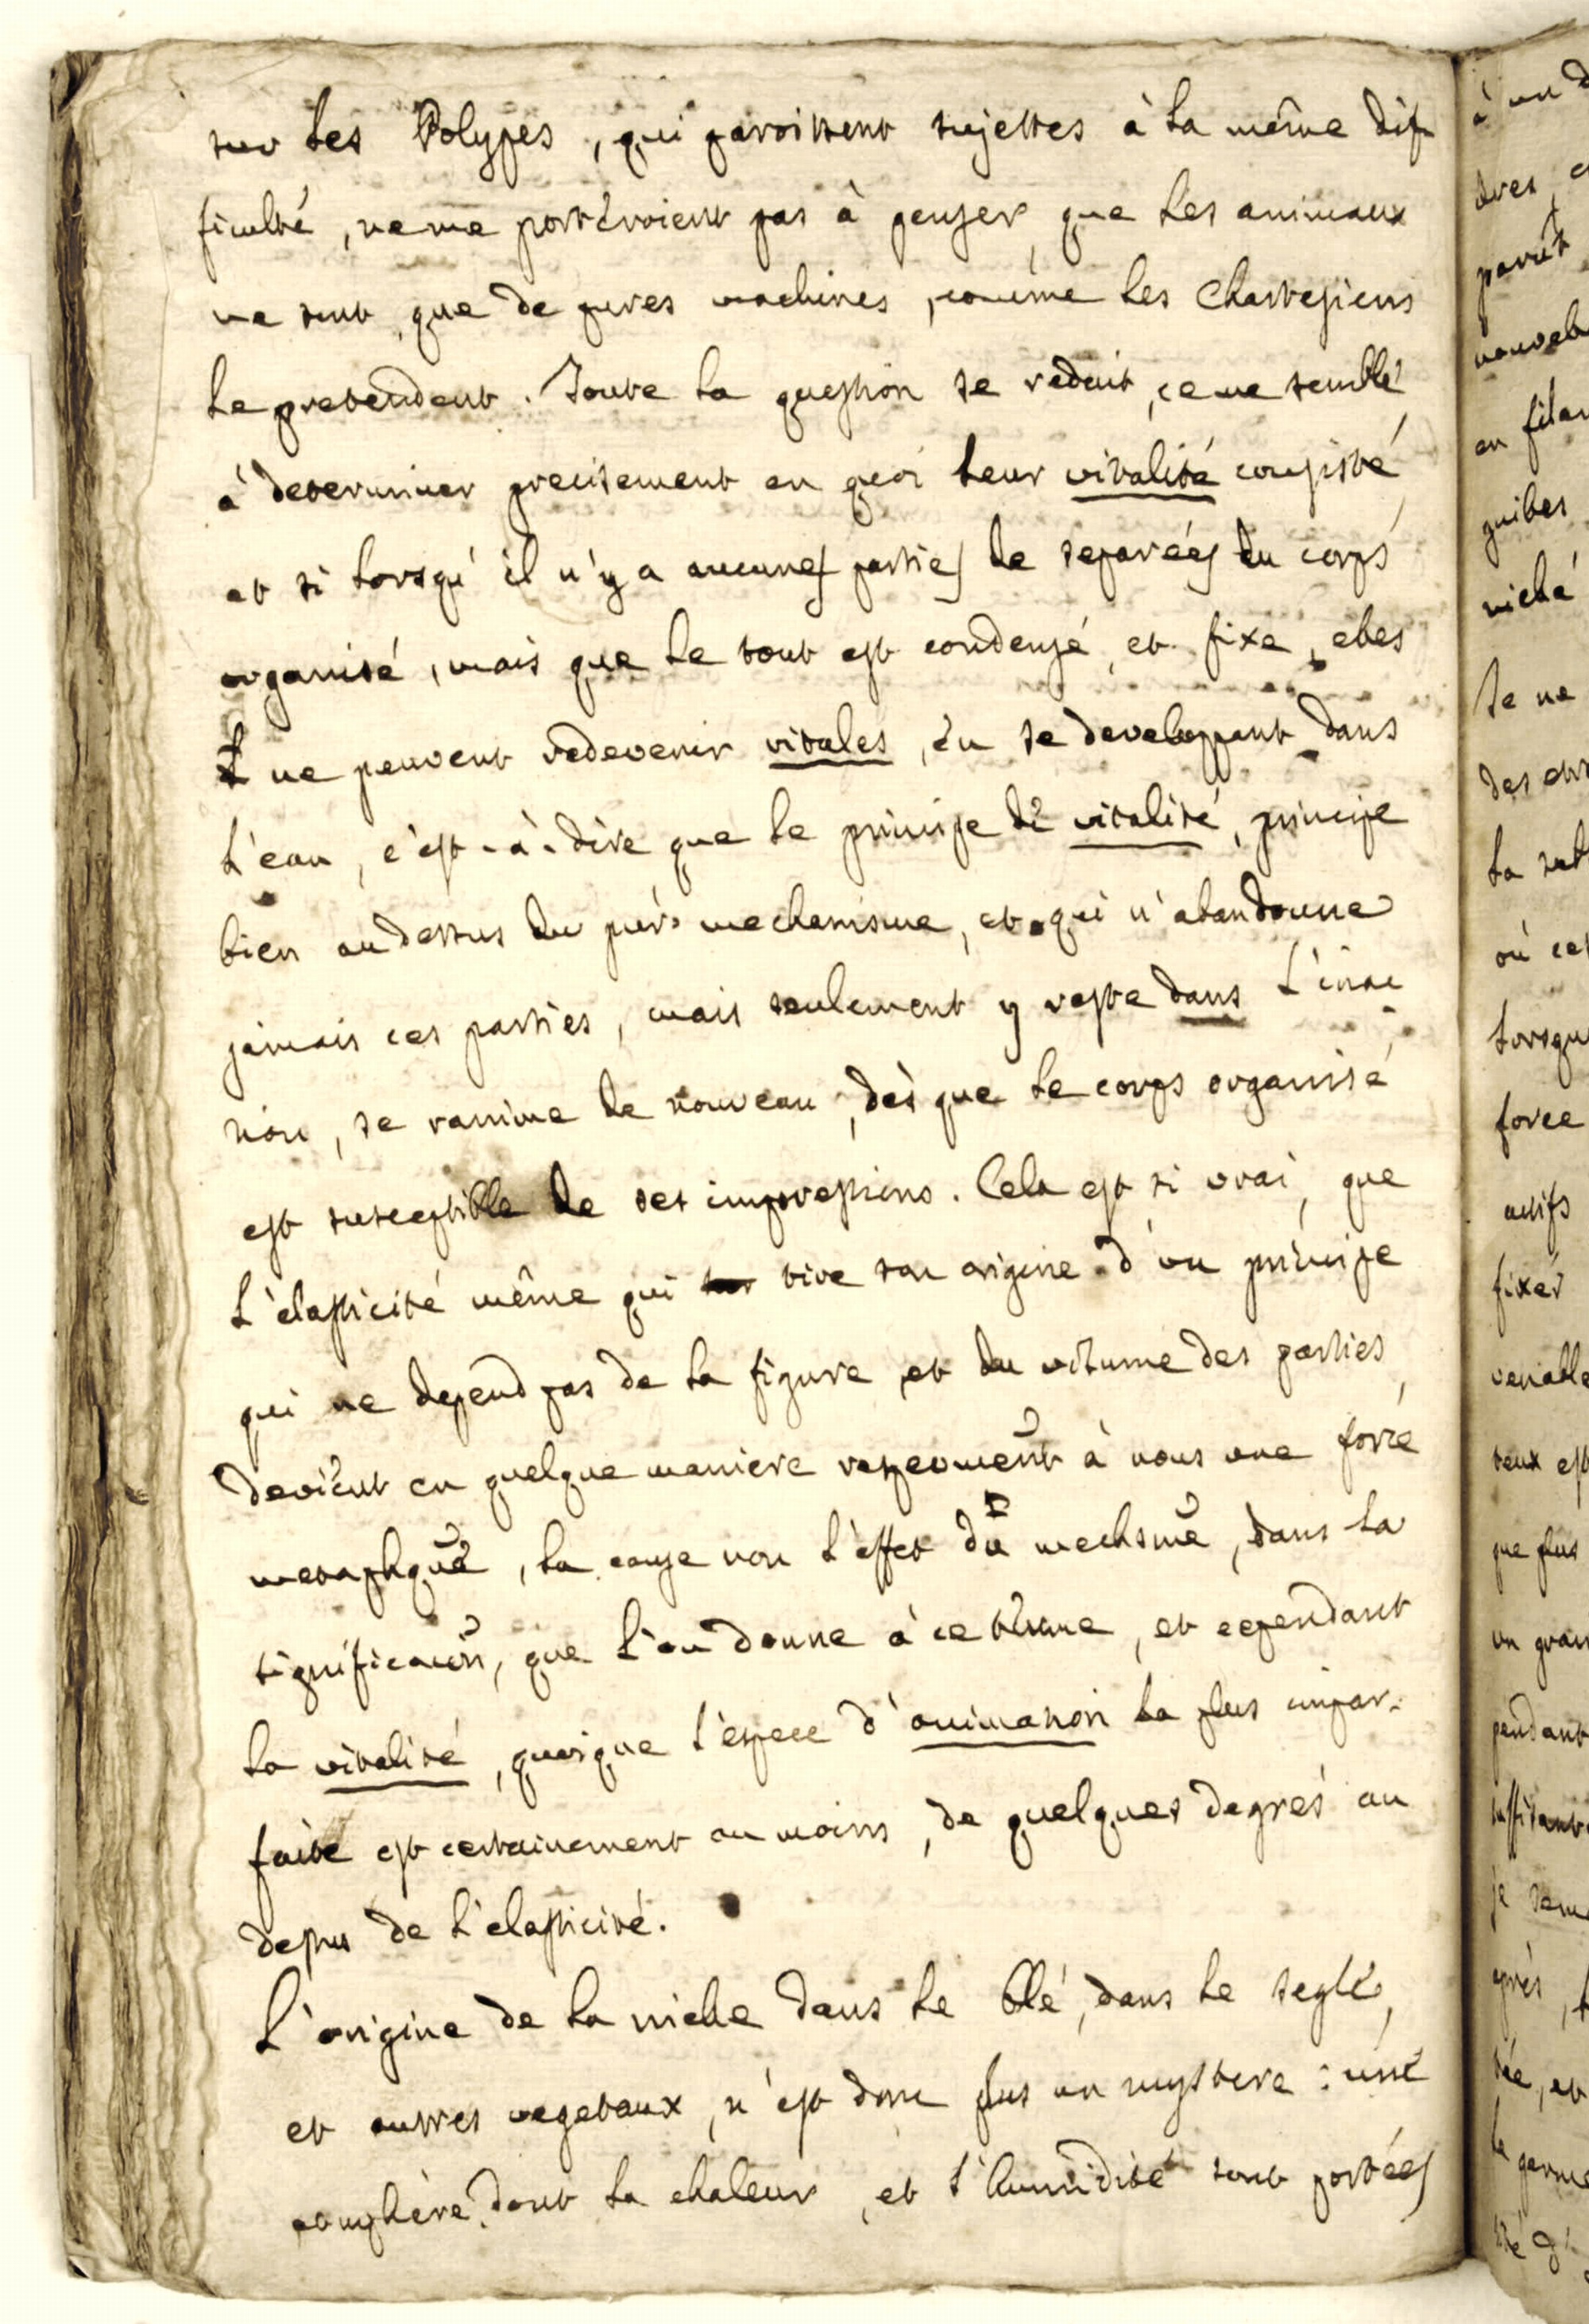 sur les Polypes, qui paroissent sujettes à la même dif
ficulté, ne me porteroient pas à penser, que les animaux
ne sont que de pures machines, comme les Chartesiens
le pretendent. Toute la question se reduit, ce me semble,
à determiner precisement en quoi leur vitalité consiste,
et si lorsqu'il n'y a aucunes parties de separées du corps
organisé, mais que le tout est condensé, et fixe, elles
ne peuvent redevenir vitales, en se developpant dans
l'eau, c'est-à-dire que le principe de vitalité, principe
bien au dessus du pur mechanisme, et qui n'abandonne
jamais ces parties, mais seulement y reste dans l'inac
tion, se ranime de nouveau, dès que le corps organisé
est susceptible de ses impressions. Cela est si vrai, que
l'elasticité même qui tire son origine d'un principe
qui ne depend pas de la figure, et du volume des parties,
devient en quelque maniere respectivement à nous une force
metaphque, la cause non l'effet du mechsme, dans la
significaon, que l'on donne à ce terme, et cependant
la vitalité, quoique l'espece d'animation la plus impar-
faite est certainement au moins, de quelques degrés au
depus de l'elasticité.
L'origine de la nielle dans le blé, dans le segle,
et autres vegetaux, n'est donc plus un mystere: une
atmosphère, dont la chaleur, et l'humidité sont portées